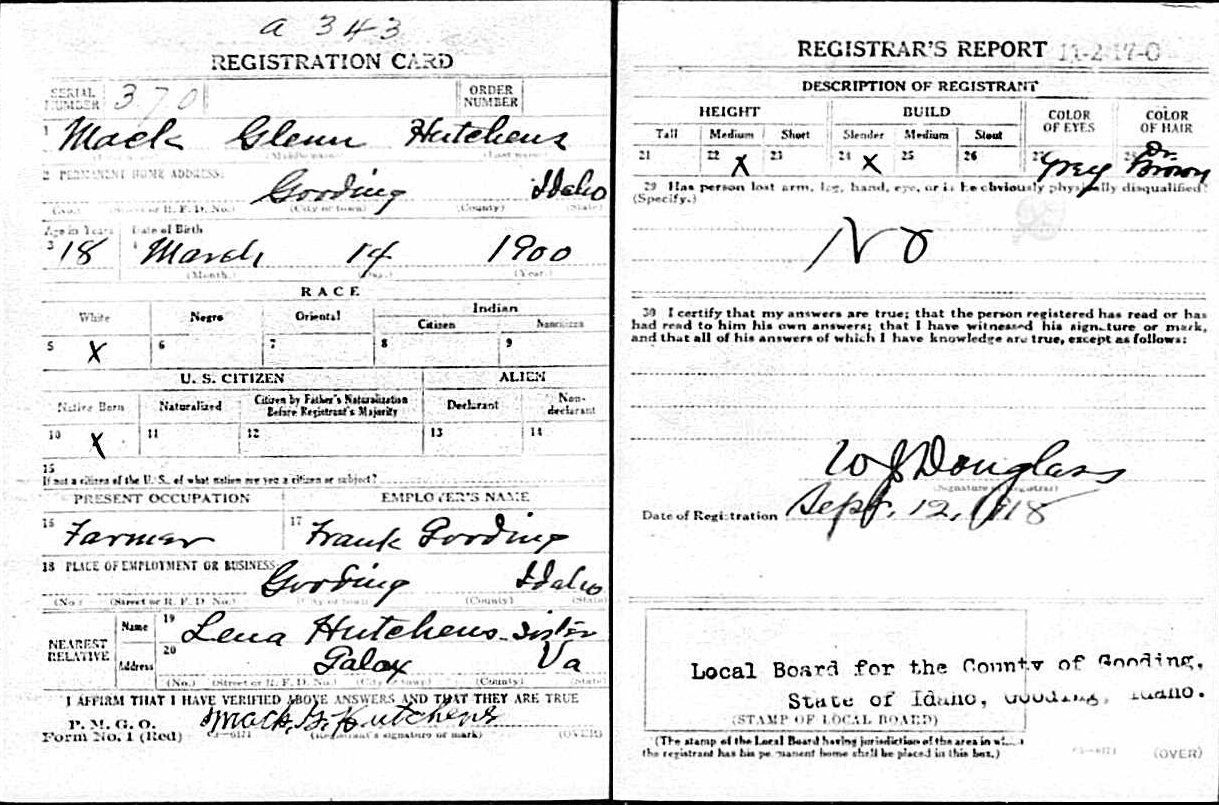 a 343
REGISTRATION CARD
SERIAL NUMBER 370 ORDER NUMBER
1 Mack Glenn Hutchens
(Middle name) (Last name)
2 PERMANENT HOME ADDRESS:
Gooding Idaho
(No.) (Street or R. F. D. No.) (City or town) (County) (State)
Age in Years Date of Birth
3 18 4 March 14 1900
(Month.) (Day.) (Year.)
RACE
White Negro Oriental Indian
Citizen Noncitizen
5 X 6 7 8 9
U. S. CITIZEN ALIEN
Native Born Naturalized Citizen by Father's Naturalization Before Registrant's Majority Declarant Non-declarant
10 X 11 12 13 14
15
If not a citizen of the U. S., of what nation are you a citizen or subject?
PRESENT OCCUPATION EMPLOYER'S NAME
16 Farmer 17 Frank Gooding
18 PLACE OF EMPLOYMENT OR BUSINESS:
Gooding Idaho
(No.) (Street or R. F. D. No.) (City or town) (County) (State)
NEAREST RELATIVE Name 19 Lena Hutchens - Sister
Address 20 Galax Va
(No.) (Street or R. F. D. No.) (City or town) (County) (State)
I AFFIRM THAT I HAVE VERIFIED ABOVE ANSWERS AND THAT THEY ARE TRUE
P. M. G. O.
Form No. 1 (Red) Mack G. Hutchens
(Registrant's signature or mark) (OVER)
REGISTRAR'S REPORT 11-2-17-C
DESCRIPTION OF REGISTRANT
HEIGHT BUILD COLOR OF EYES COLOR OF HAIR
Tall Medium Short Slender Medium Stout
21 22 X 23 24 X 25 26 27 Grey 28 Dr. Brown
29 Has person lost arm, leg, hand, eye, or is he obviously physically disqualified?
(Specify.)
No
30 I certify that my answers are true; that the person registered has read or has
had read to him his own answers; that I have witnessed his signature or mark,
and that all of his answers of which I have knowledge are true, except as follows:
W J Douglass
(Signature of Registrar)
Date of Registration Sept. 12, 1918
Local Board for the County of Gooding,
State of Idaho, Gooding, Idaho.
(STAMP OF LOCAL BOARD)
(The stamp of the Local Board having jurisdiction of the area in which
the registrant has his permanent home shall be placed in this box.)
(OVER)